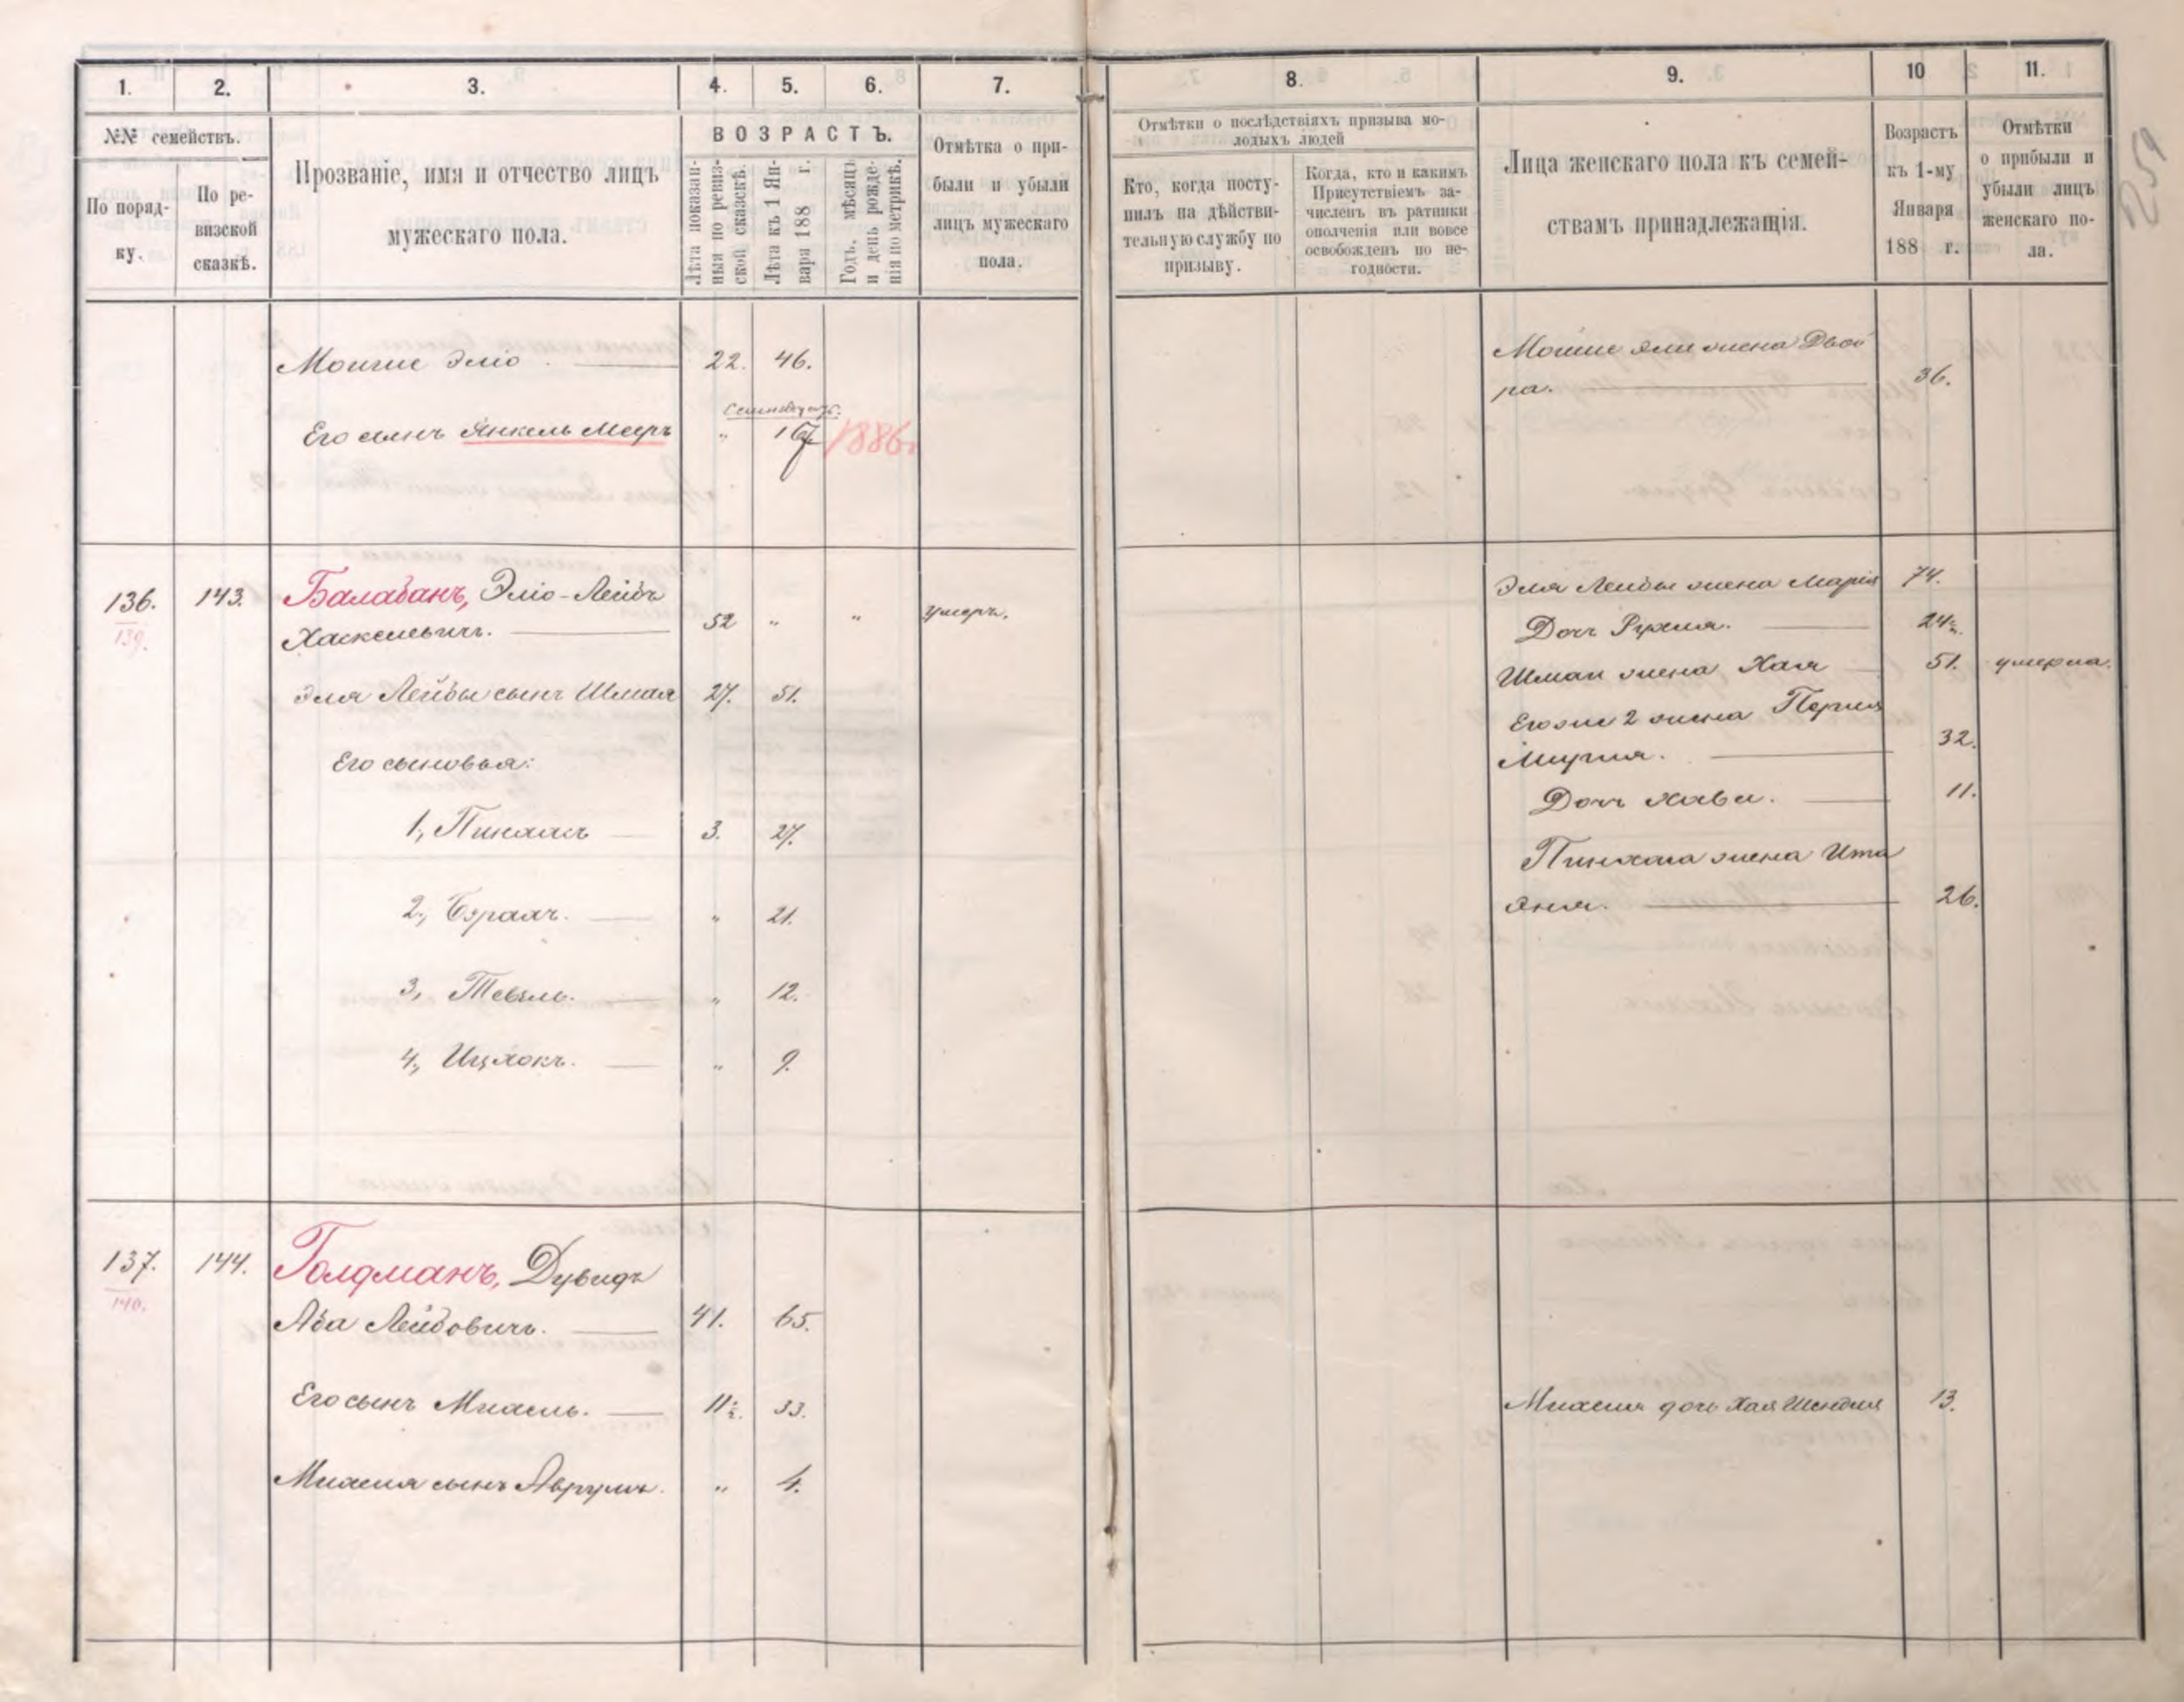 1. 2. 3. 4. 5. 6. 7. 8. 9. 10 11.
№№ семействъ.
По поряд-
ку.
По ре-
визской
сказкѣ.
Прозваніе, имя и отчество лицъ
мужескаго пола.
ВОЗРАСТЪ.
Лѣта показан-
ныя по ревиз-
ской сказкѣ.
Лѣта къ 1 Ян-
варя 188 г.
Годъ, мѣсяцъ
и день рожде-
нія по метрикѣ.
Отмѣтка о при-
были и убыли
лицъ мужескаго
пола.
Отмѣтки о послѣдствіяхъ призыва мо-
лодыхъ людей
Кто, когда посту-
пилъ на дѣйстви-
тельную службу по
призыву.
Когда, кто и какимъ
Присутствіемъ за-
численъ въ ратники
ополченія или вовсе
освобожденъ по не-
годности.
Лица женскаго пола къ семей-
ствамъ принадлежащія.
Возрастъ
къ 1-му
Января
188 г.
Отмѣтки
о прибыли и
убыли лицъ
женскаго по-
ла.
Мошие Эліо 22. 46.
Его сынъ Янкель Мееръ " 1886
Мошие Эли жена Двой
ра. 36.
136. 143. Балабанъ, Эліо-Лейбъ
139.
Хаскелевичъ. 52 " " умеръ.
Эля Лейбы сынъ Шмая 27. 51.
Его сыновья:
1, Пинхасъ 3. 27.
2, Сраль. " 21.
3, Тевель. " 12.
4, Ицхокъ. " 9.
Эля Лейбы жена Марія 74.
Дочь Рухля. 24
Шмаи жена Хая 51. умерла.
Его же 2 жена Перля
32.
Дочь Хава. 11.
Пинхаса жена Ита
26.
137. 144. Голдманъ, Дувидъ
140.
Аба Лейбовичъ. 41. 65.
Его сынъ Михель. 11½. 33.
Михеля сынъ Аврумъ. " 4.
Михеля дочь Хая Шендля 13.